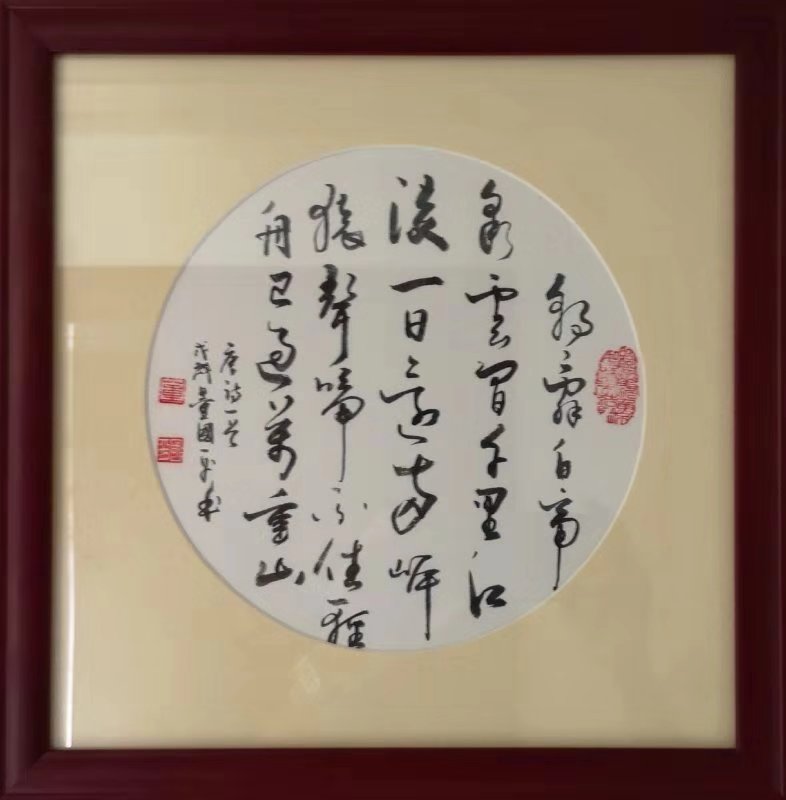 朝辭白帝
彩雲間千里江
淩一日還兩岸
猿聲啼不住輕
舟已過萬重山
唐詩一首
戊戌董國平書